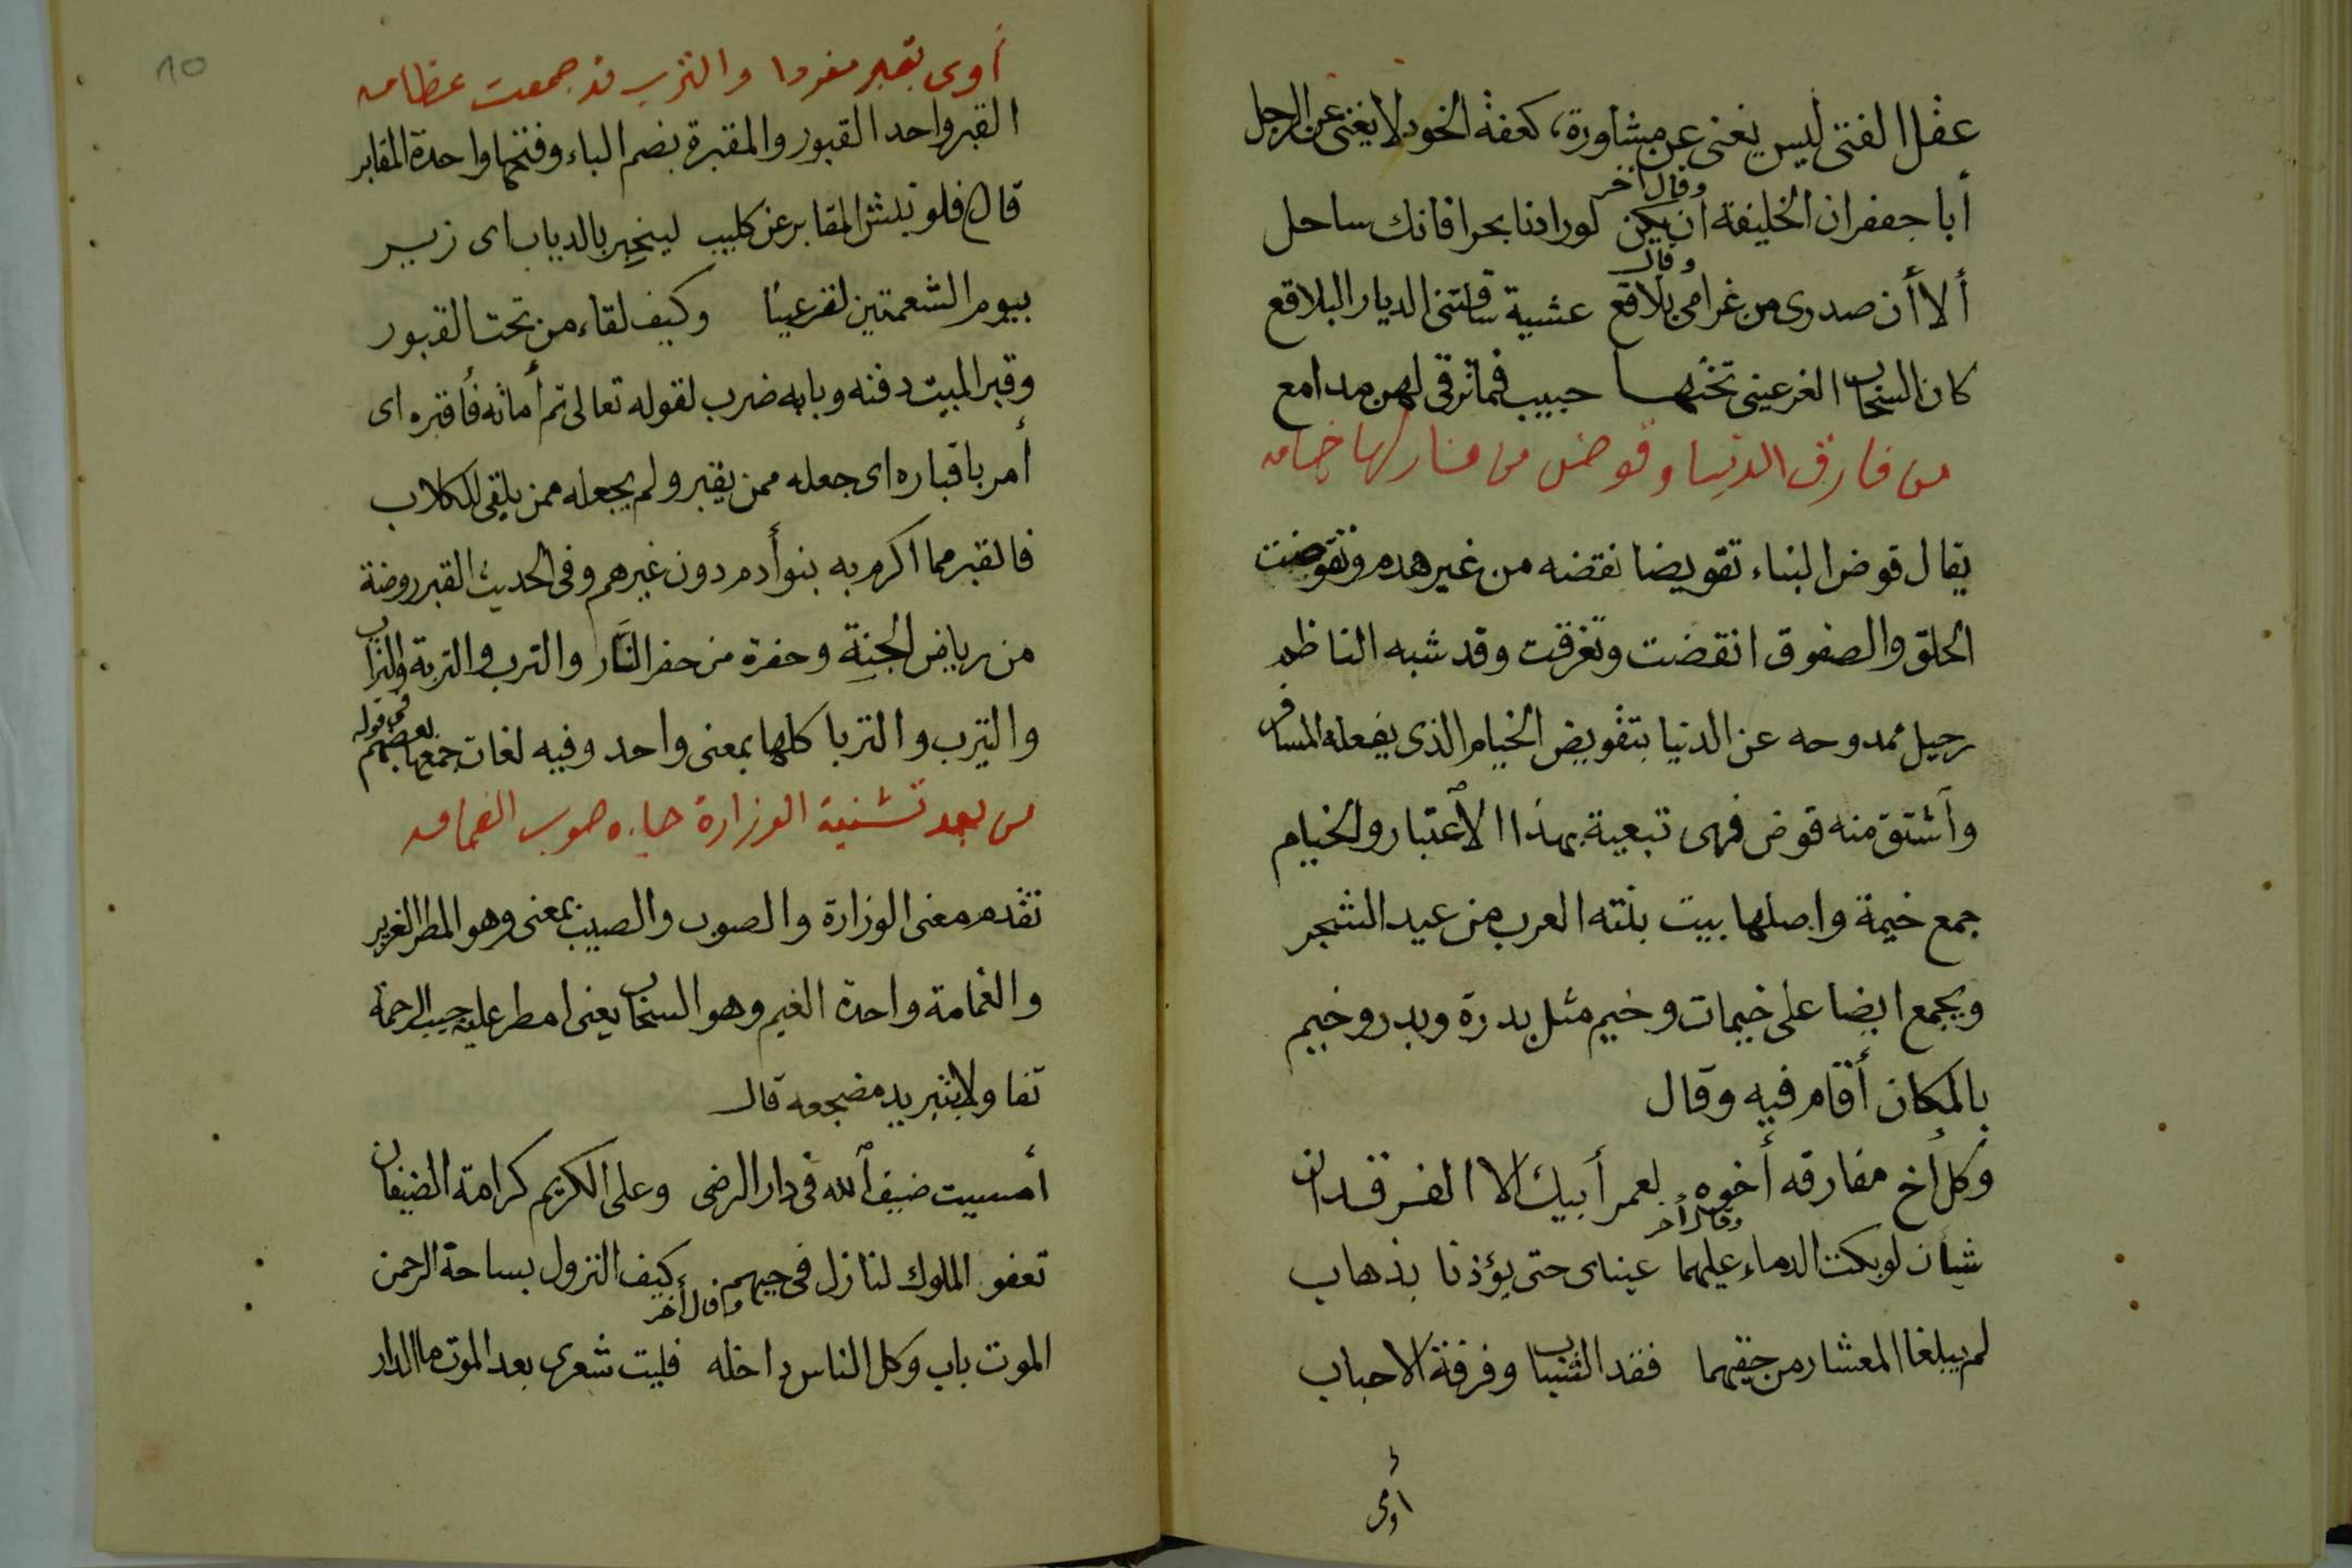 عقل الفتى ليس يغنى عن مشاورة، كعفة الخود لا يغنى عن الرجل
وقال أخر
أبا جعفر ان الخليفة ان يكن لورادنا بحرا فانك ساحل
وقال
ألا أن صدرى من غرامى بلاقع عشية شاقتنى الديار البلاقع
كان السحاب الغر غيبن تحتها حبيب فما ترقى لهن مدامع
من فارق الدنيا وقوض من منازلها خيامه
يقال قوض البناء تقويضا نقضه من غير هدم وتقوضت
الحلق والصفوق انقضت وتفرقت وقد شبه الناظم
رحيل ممدوحه عن الدنيا بتقويض الخيام الذى يفعله المسافر
وأشتق منه قوض فهى تبعية بهذا الأعتبار والخيام
جمع خيمة واصلها بيت بنته العرب من عيد الشجر
ويجمع ايضا على خيمات وخيم مثل بدرة وبدر وخيم
بالمكان أقام فيه وقال
وكل أخ مفارقه أخوه لعمر أبيك الا الفرقدان
وقال أخر
شيأن لو بكت الدماء عليهما عيناى حتى يؤذنا بذهاب
لم يبلغا المعشار من حقيهما فقد الشباب وفرقة الاحباب
أوى
10
أوى بقبر مفردا والترب قد جمعت عظامه
القبر واحد القبور والمقبرة بضم الباء وفتحها واحدة المقابر
قال فلو نبش المقابر عن كليب ليخبر بالدياب اى زير
بيوم الشعمتين لقر عينا وكيف لقاء من تحت القبور
وقبر الميت دفنه وبابه ضرب لقوله تعالى ثم أماته فأقبره اى
أمر باقباره اى جعله ممن يقبر ولم يجعله ممن يلقى للكلاب
فالقبر مما اكرم به بنو أدم دون غيرهم وفى الحديث القبر روضة
من رياض الجنة وحفرة من حفر النار والترب والتربة والتراب
والتيرب والتربا كلها بمعنى واحد وفيه لغات جمعها بعضهم فى قوله
من بعد تثنية الوزارة جاءه صوب الغمامه
تقدم معنى الوزارة والصوب والصيب بمعنى وهو المطر الغزير
والغمامة واحدة الغيم وهو السحاب يعنى امطر عليه صيب الرحمة
تفاولا بتبريد مضجعه قال
أمسيت ضيف ألله فى دار الرضى وعلى الكريم كرامة الضيفان
تعفو الملوك لنازل فى حيهم كيف النزول بساحة الرحمن
وقال أخر
الموت باب وكل الناس داخله فليت شعرى بعد الموت ما الدار